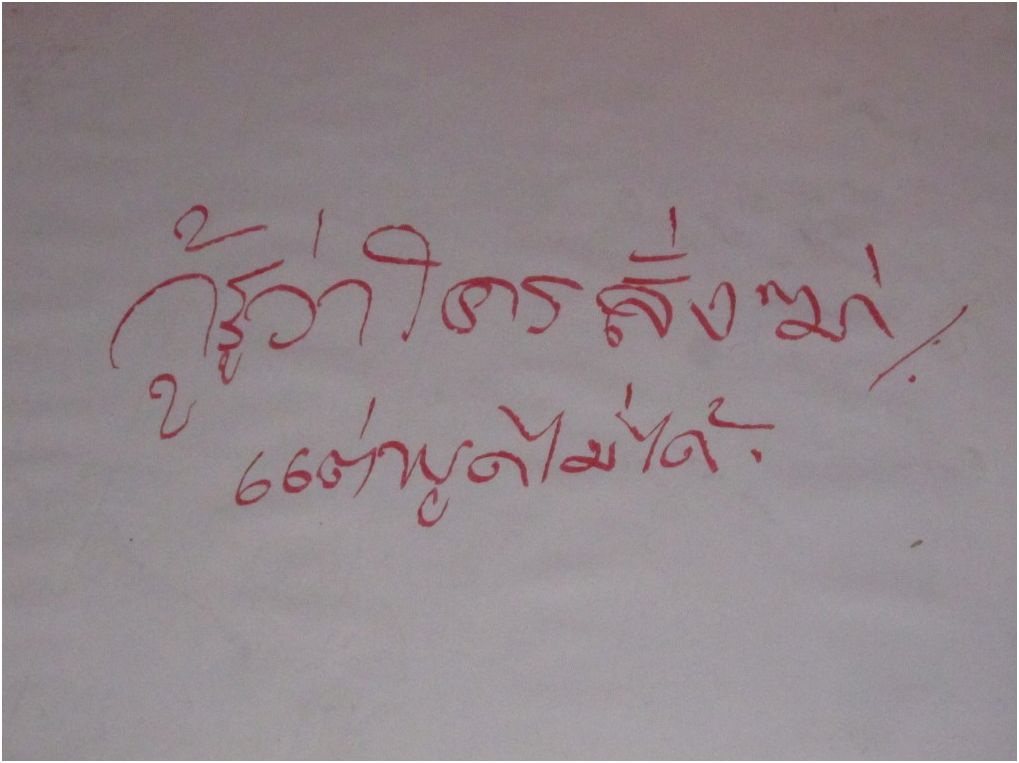 กูรู้ว่าใครสั่งฆ่า/.
แต่พูดไม่ได้.